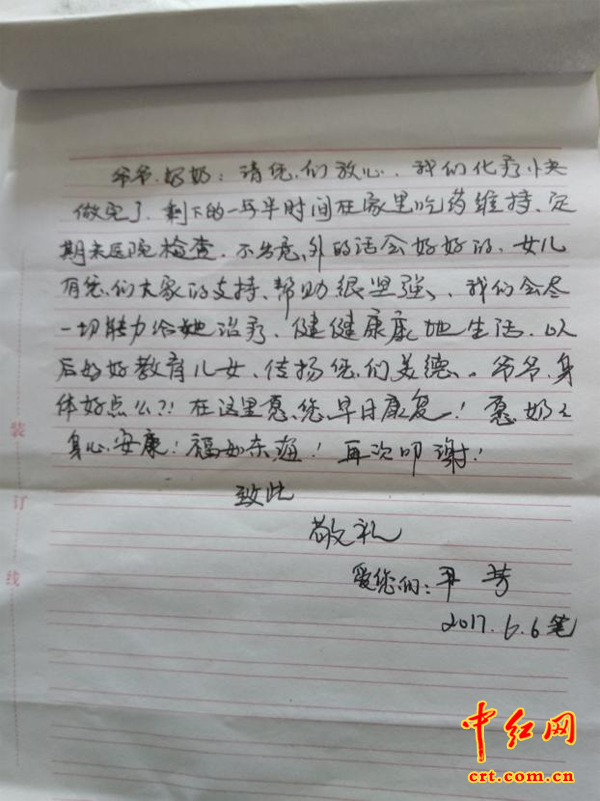 爷爷、奶奶：请您们放心、我们化疗快
做完了、剩下的一年半时间在家里吃药维持、定
期来医院检查、不出意外的话会好好的、女儿
有您们大家的支持、帮助很坚强、我们会尽
一切能力给她治疗、健健康康地生活、以
后好好教育儿女、传扬您们美德、。爷爷、身
体好点么?! 在这里愿您早日康复! 愿奶々
身心安康! 福如东海! 再次叩谢!
致此
敬礼
爱您们: 平芳
2017.6.6笔
装
订
线
中红网
crt.com.cn